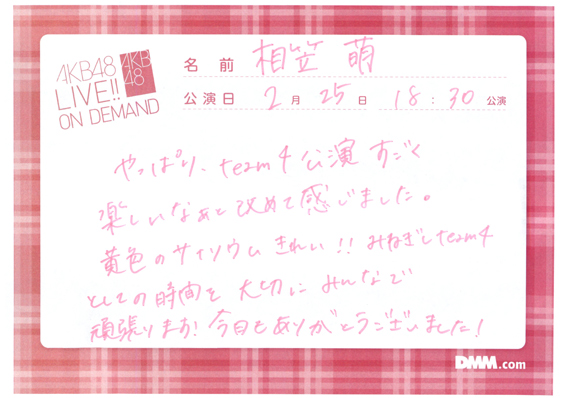 AKB48
LIVE!!
ON DEMAND
AKB
48
名前 相笠 萌
公演日 2月25日 18:30 公演
やっぱり、team4公演すごく
楽しいなぁと改めて感じました。
黄色のサイリウムきれい!! みねぎしteam4
としての時間を大切にみんなで
頑張ります!今日もありがとうございました!
DMM.com